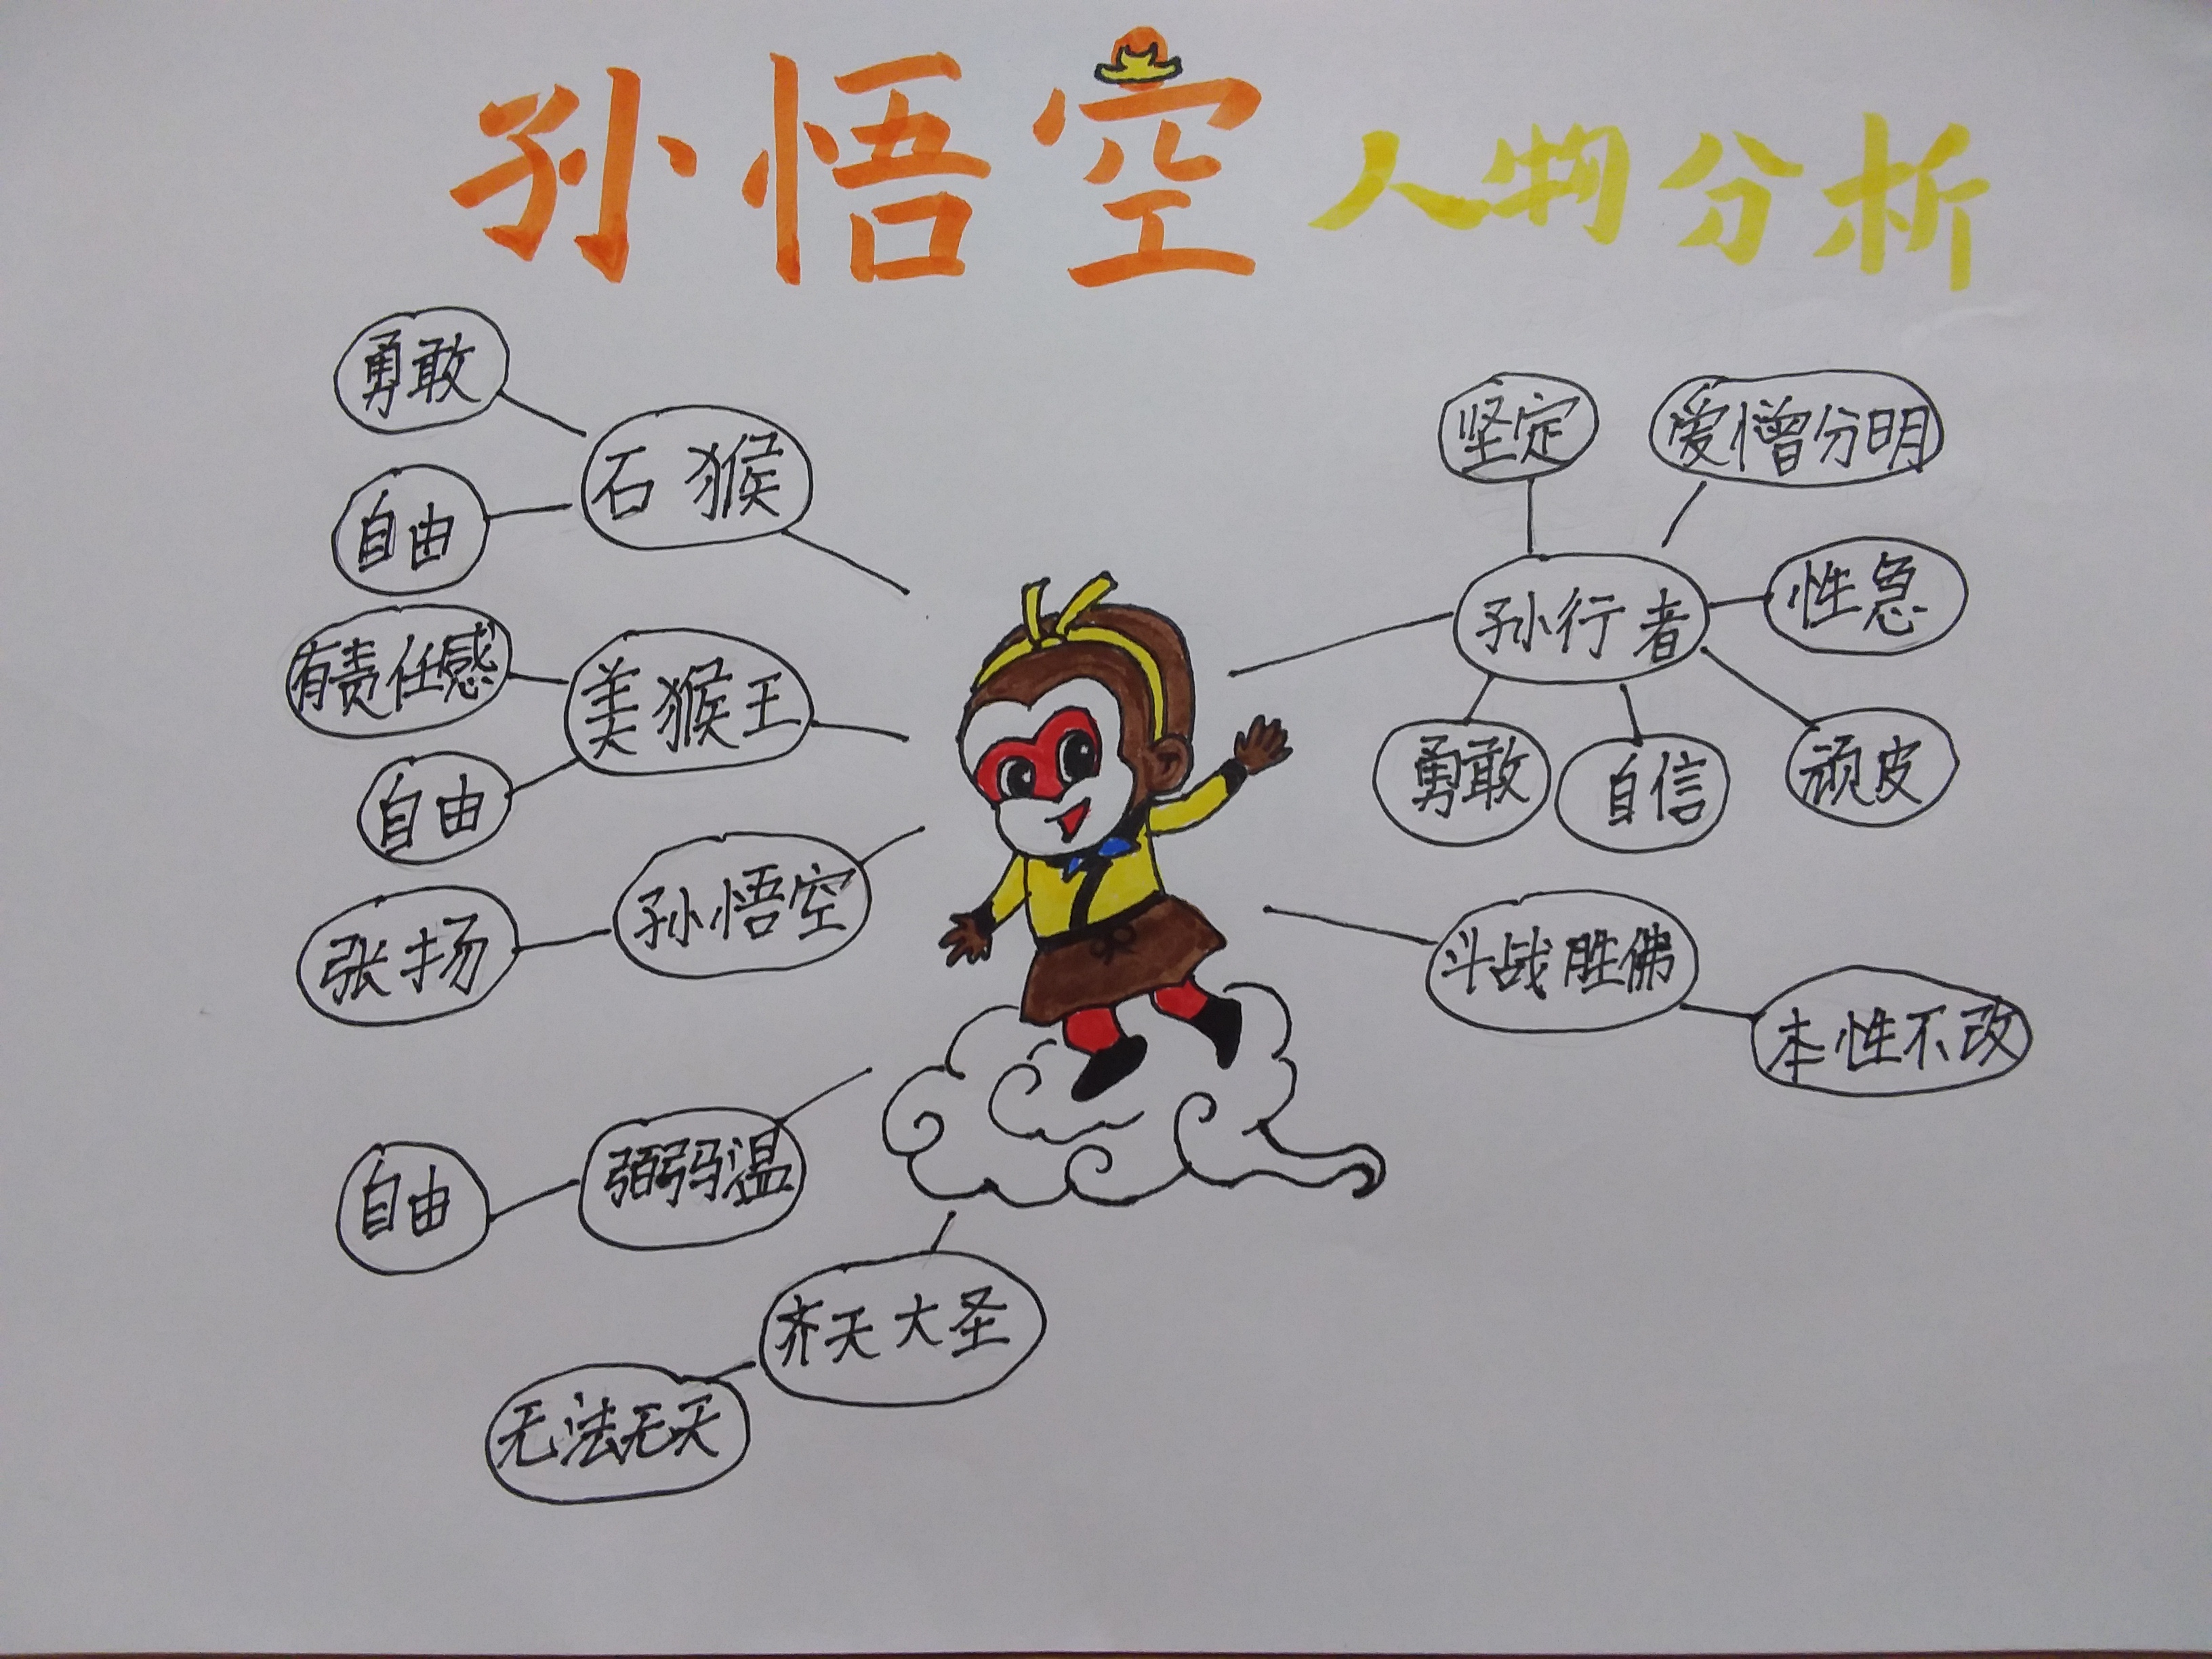 孙悟空人物分析
勇敢
自由
石猴
有责任感
自由
美猴王
张扬
孙悟空
自由
弼马温
无法无天
齐天大圣
坚定
爱憎分明
孙行者
性急
勇敢
自信
顽皮
斗战胜佛
本性不改